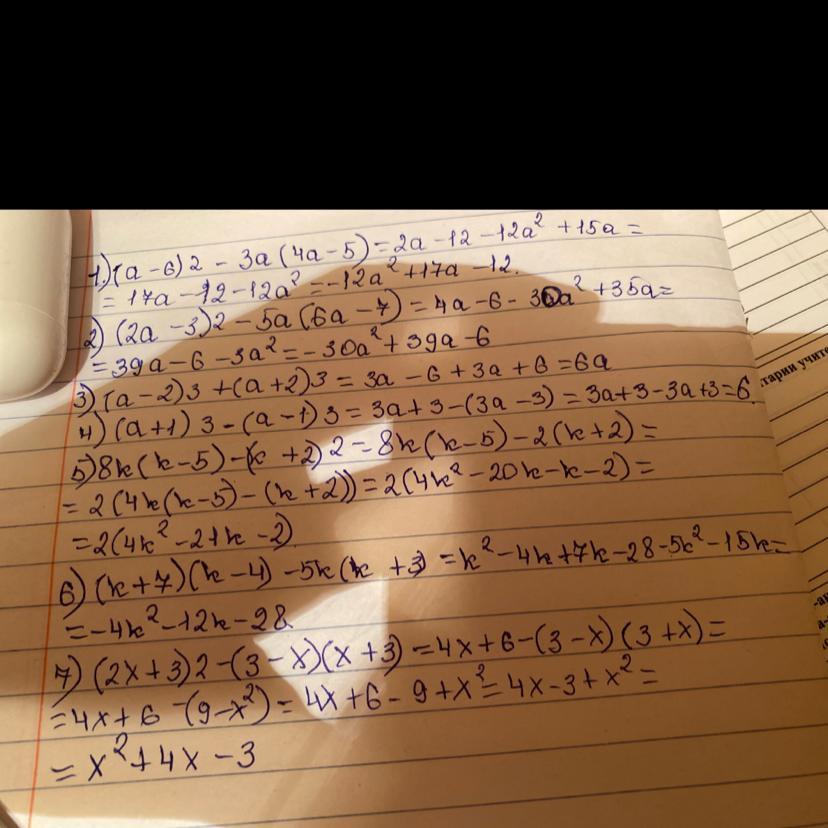 1) (a-6)2 - 3a(4a-5) = 2a-12-12a² +15a =
= 17a -12-12a² = -12a² +17a -12.
2) (2a -3)2 -5a(6a-7) = 4a-6-30a² +35a=
=39a-6-3a² = -30a² +39a-6
3) (a-2)3 +(a+2)3 = 3a -6+3a+6=6a
4) (a+1)3-(a-1)3=3a+3-(3a-3)=3a+3-3a+3=6.
5) 8k(k-5)-(k +2)2=8k(k-5)-2(k+2)=
=2(4k(k-5)-(k+2))=2(4k²-20k-k-2)=
=2(4k²-21k-2)
6) (k+7)(k-4)-5k(k +3) =k²-4k+7k-28-5k²-15k=
=-4k²-12k-28.
7) (2x+3)2-(3-x)(x+3)=4x+6-(3-x)(3+x)=
=4x+6-(9-x²)=4x+6-9+x²=4x-3+x²=
=x²+4x-3
тарии учите